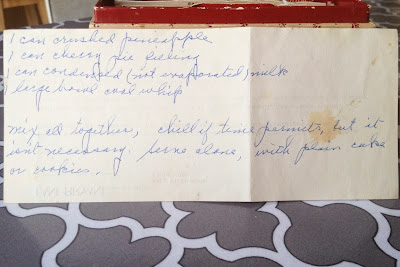 1 can crushed pineapple
1 can cherry pie filling
1 can condensed (not evaporated) milk
1 large bowl cool whip
mix all together, chill if time permits, but it
isnt necessary. Serve alone, with plain cake
or cookies.